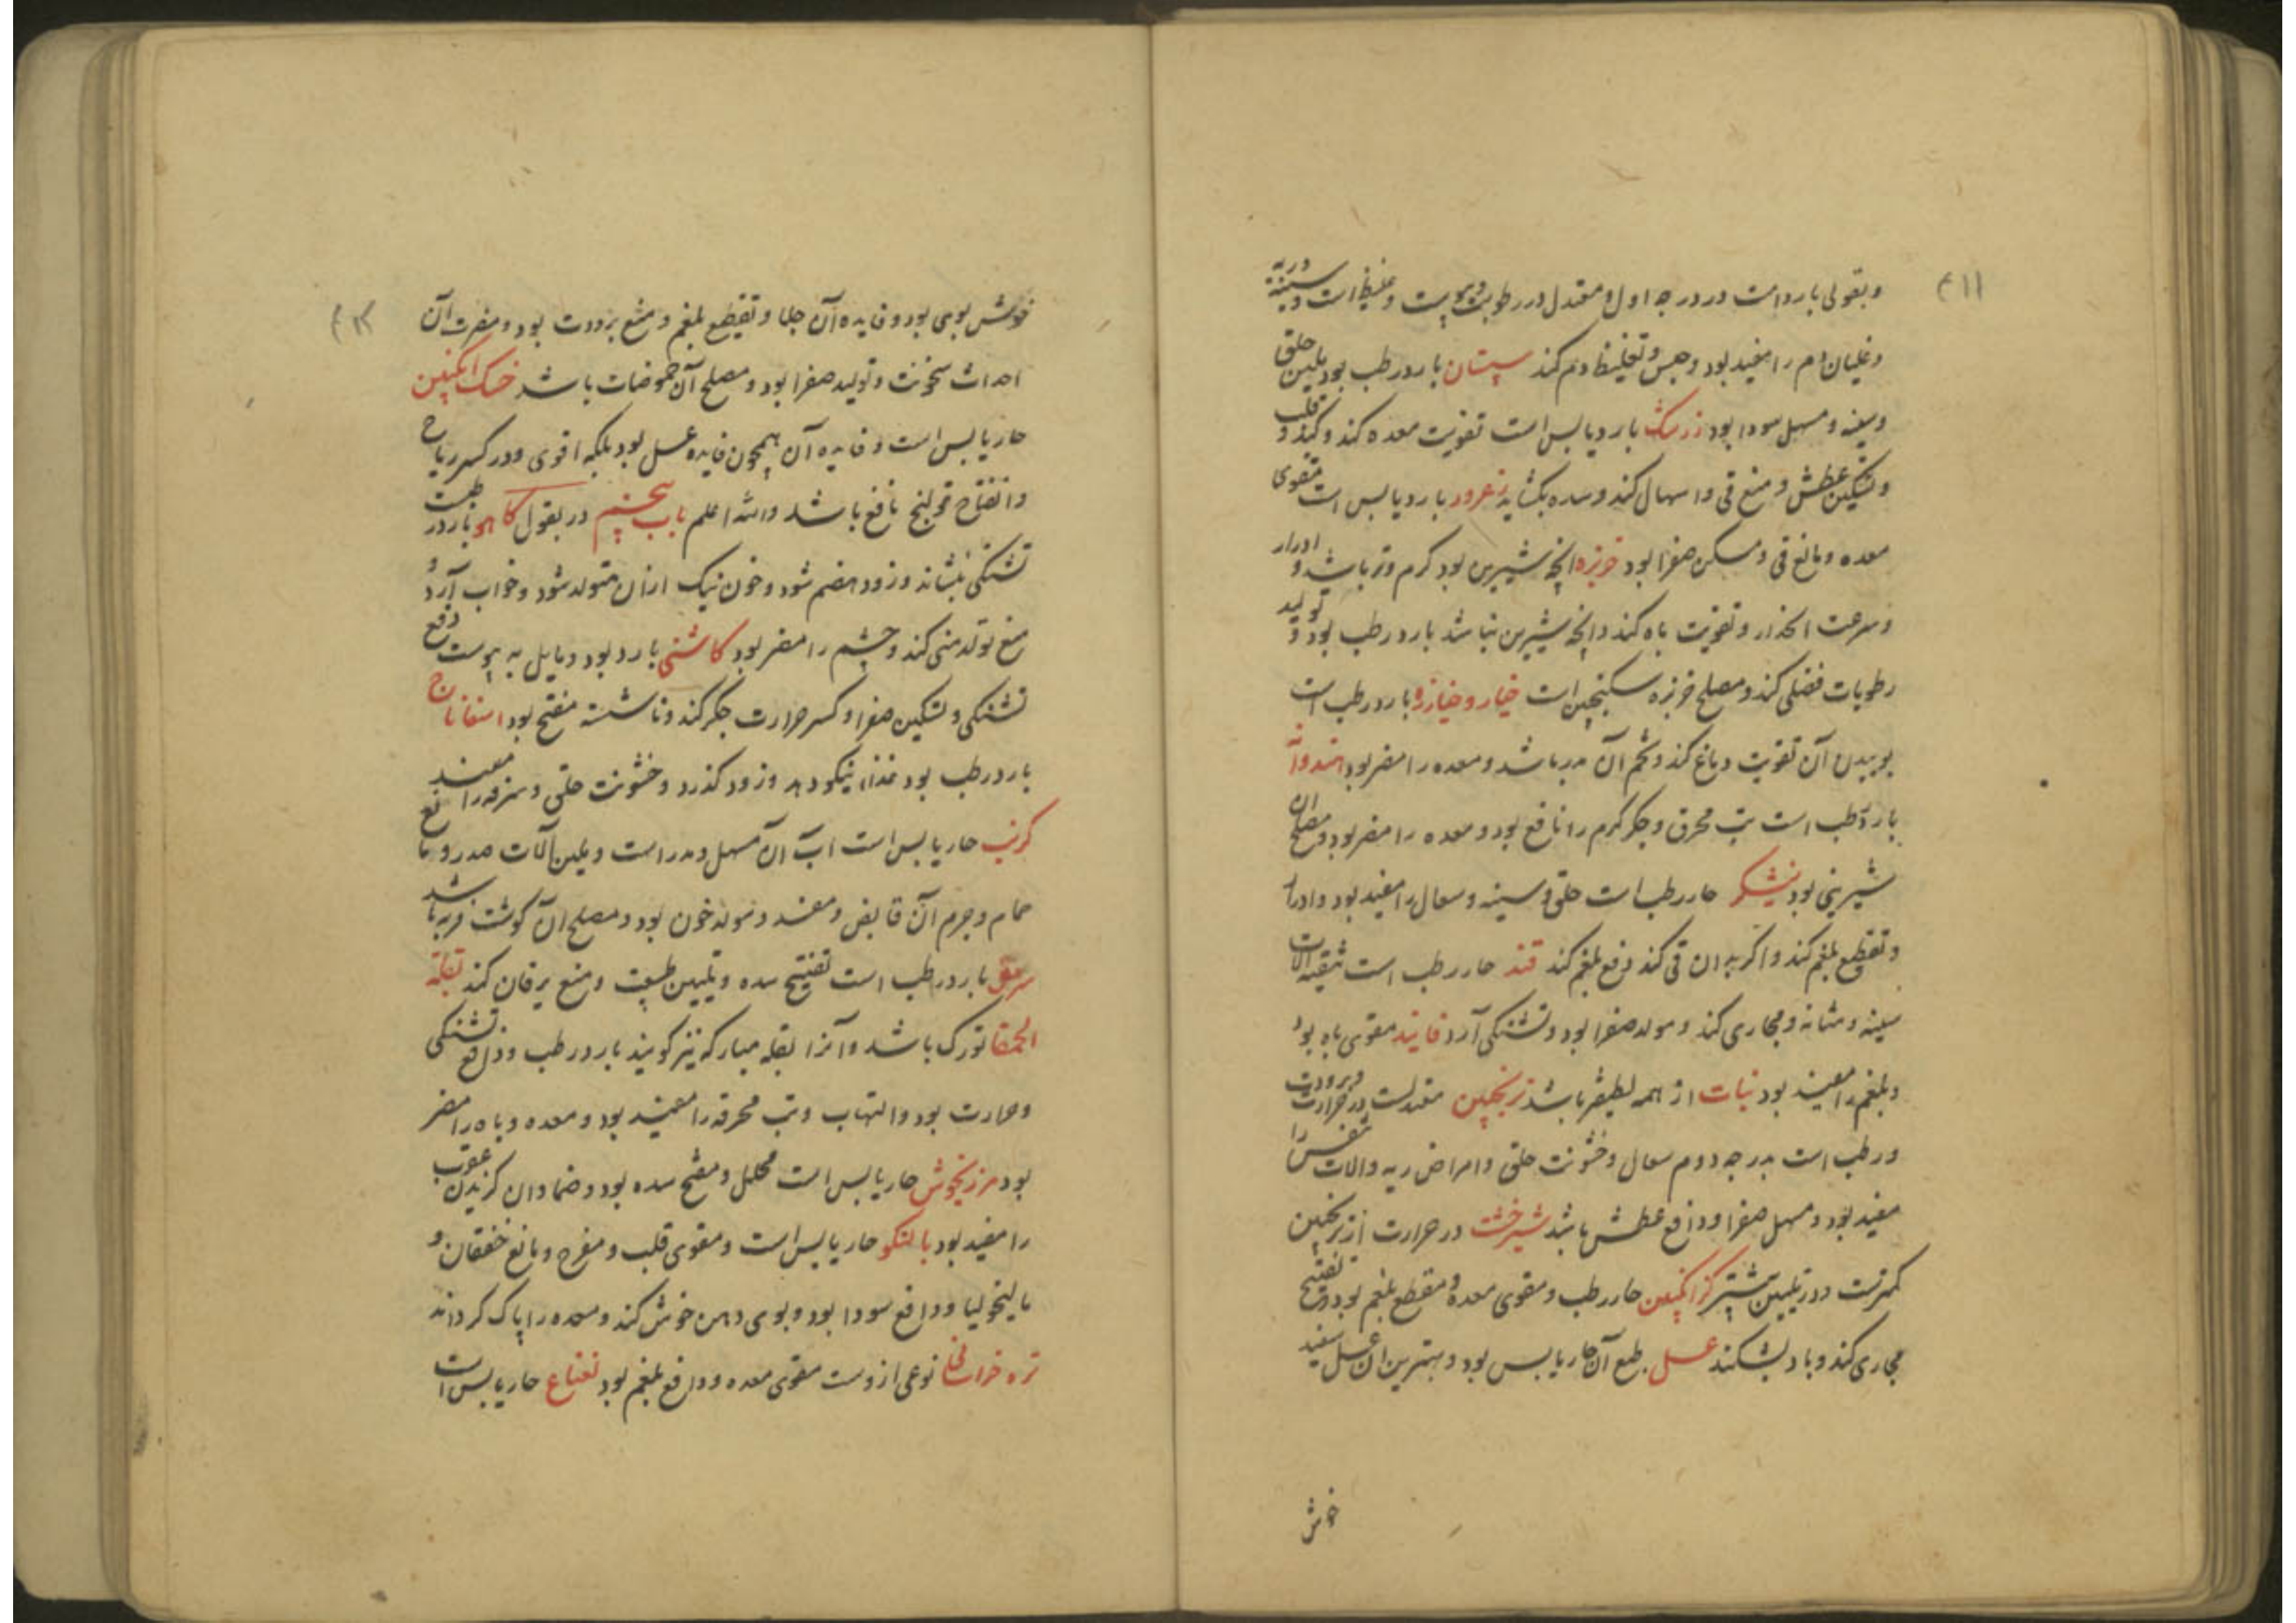 وبقولی بارد است در درجه اول و معتدل در رطوبت و یبوست و غلیظ است و سینه و ریه
و غلیان دم را مفید بود و حبس و تغلیظ دم کند سپستان بارد رطب بود ملین حلق
و سینه و مسهل سودا بود زرشک بارد یابس است تقویت معده کند و کبد و قلب
و تسکین عطش و منع قی و اسهال کند و سده بکشاید زعرور بارد یابس است مقوی
معده و مانع قی و مسکن صفرا بود خربزه انچه شیرین بود کرم و تر باشد و ادرار
و سرعت انحدار و تقویت باه کند و انچه شیرین نباشد بارد رطب بود و تولید
رطوبات فضلی کند و مصلح خربزه سکنجبین است خیار و خیارزه بارد رطب است
بوییدن آن تقویت دماغ کند و تخم آن مدر باشد و معده را مضر بود هندوانه
بارد رطب است تب محرق و جکر کرم را نافع بود و معده را مضر بود و مصلح ان
شیرینی بود نیشکر حار رطب است حلق و سینه و سعال را مفید بود و ادرار
و تقطیع بلغم کند و اکر بدان قی کند دفع بلغم کند قند حار رطب است تنقیه الات
سینه و مثانه و مجاری کند و مولد صفرا بود و تشنکی آرد فانید مقوی باه بود
و بلغم را مفید بود نبات از همه لطیفتر باشد ترنجبین معتدلست در حرارت و برودت
و رطب است بدرجه دوم سعال و خشونت حلق و امراض ریه و الات تنفس را
مفید بود و مسهل صفرا و دافع عطش باشد شیرخشت در حرارت از ترنجبین
کمترست و در تلیین بیشتر کزانکبین حار رطب و مقوی معده و مقطع بلغم بود و تفتیح
مجاری کند و باد بشکند عسل طبع آن حار یابس بود و بهترین ان عسل سفید
خوش
خوش بوی بود و فایده آن جلا و تقطیع بلغم و منع برودت بود و مضرت آن
احداث سخونت و تولید صفرا بود و مصلح آن حموضات باشد خشک انکبین
حار یابس است و فایده آن همچون فایده عسل بود بلکه اقوی و در کسر ریاح
و انفتاح قولنج نافع باشد والله اعلم باب پنجم در بقول کاهو بارد رطبست
تشنکی بنشاند و زود هضم شود و خون نیک ازان متولد شود و خواب آرد و
منع تولد منی کند و چشم را مضر بود کاسنی بارد بود و مایل به یبوست دفع
تشنکی و تسکین صفرا و کسر حرارت جکر کند و ناشسته مفتح بود اسفاناج
بارد رطب بود غذا نیکو دهد و زود کذرد و خشونت حلق و سرفه را مفید
کرنب حار یابس است آب آن مسهل و مدر است و ملین آلات صدر و نافع
حمام و جرم آن قابض و مفسد و مولد خون بود و مصلح ان کوشت فربه باشد
سرمق بارد رطب است تفتیح سده و تلیین طبیعت و منع یرقان کند بقلة
الحمقا تورک باشد و آنرا بقله مبارکه نیز کویند بارد رطب و دافع تشنکی
و حرارت بود و التهاب و تب محرقه را مفید بود و معده و باه را مضر
بود مرزنجوش حار یابس است محلل و مفتح سده بود و ضماد ان کزیدن عقرب
را مفید بود بالنکو حار یابس است و مقوی قلب و مفرح و مانع خفقان و
مالیخولیا و دافع سودا بود و بوی دهن خوش کند و معده را پاک کرداند
تره خراسانی نوعی ازوست مقوی معده و دافع بلغم بود نعناع حار یابس است